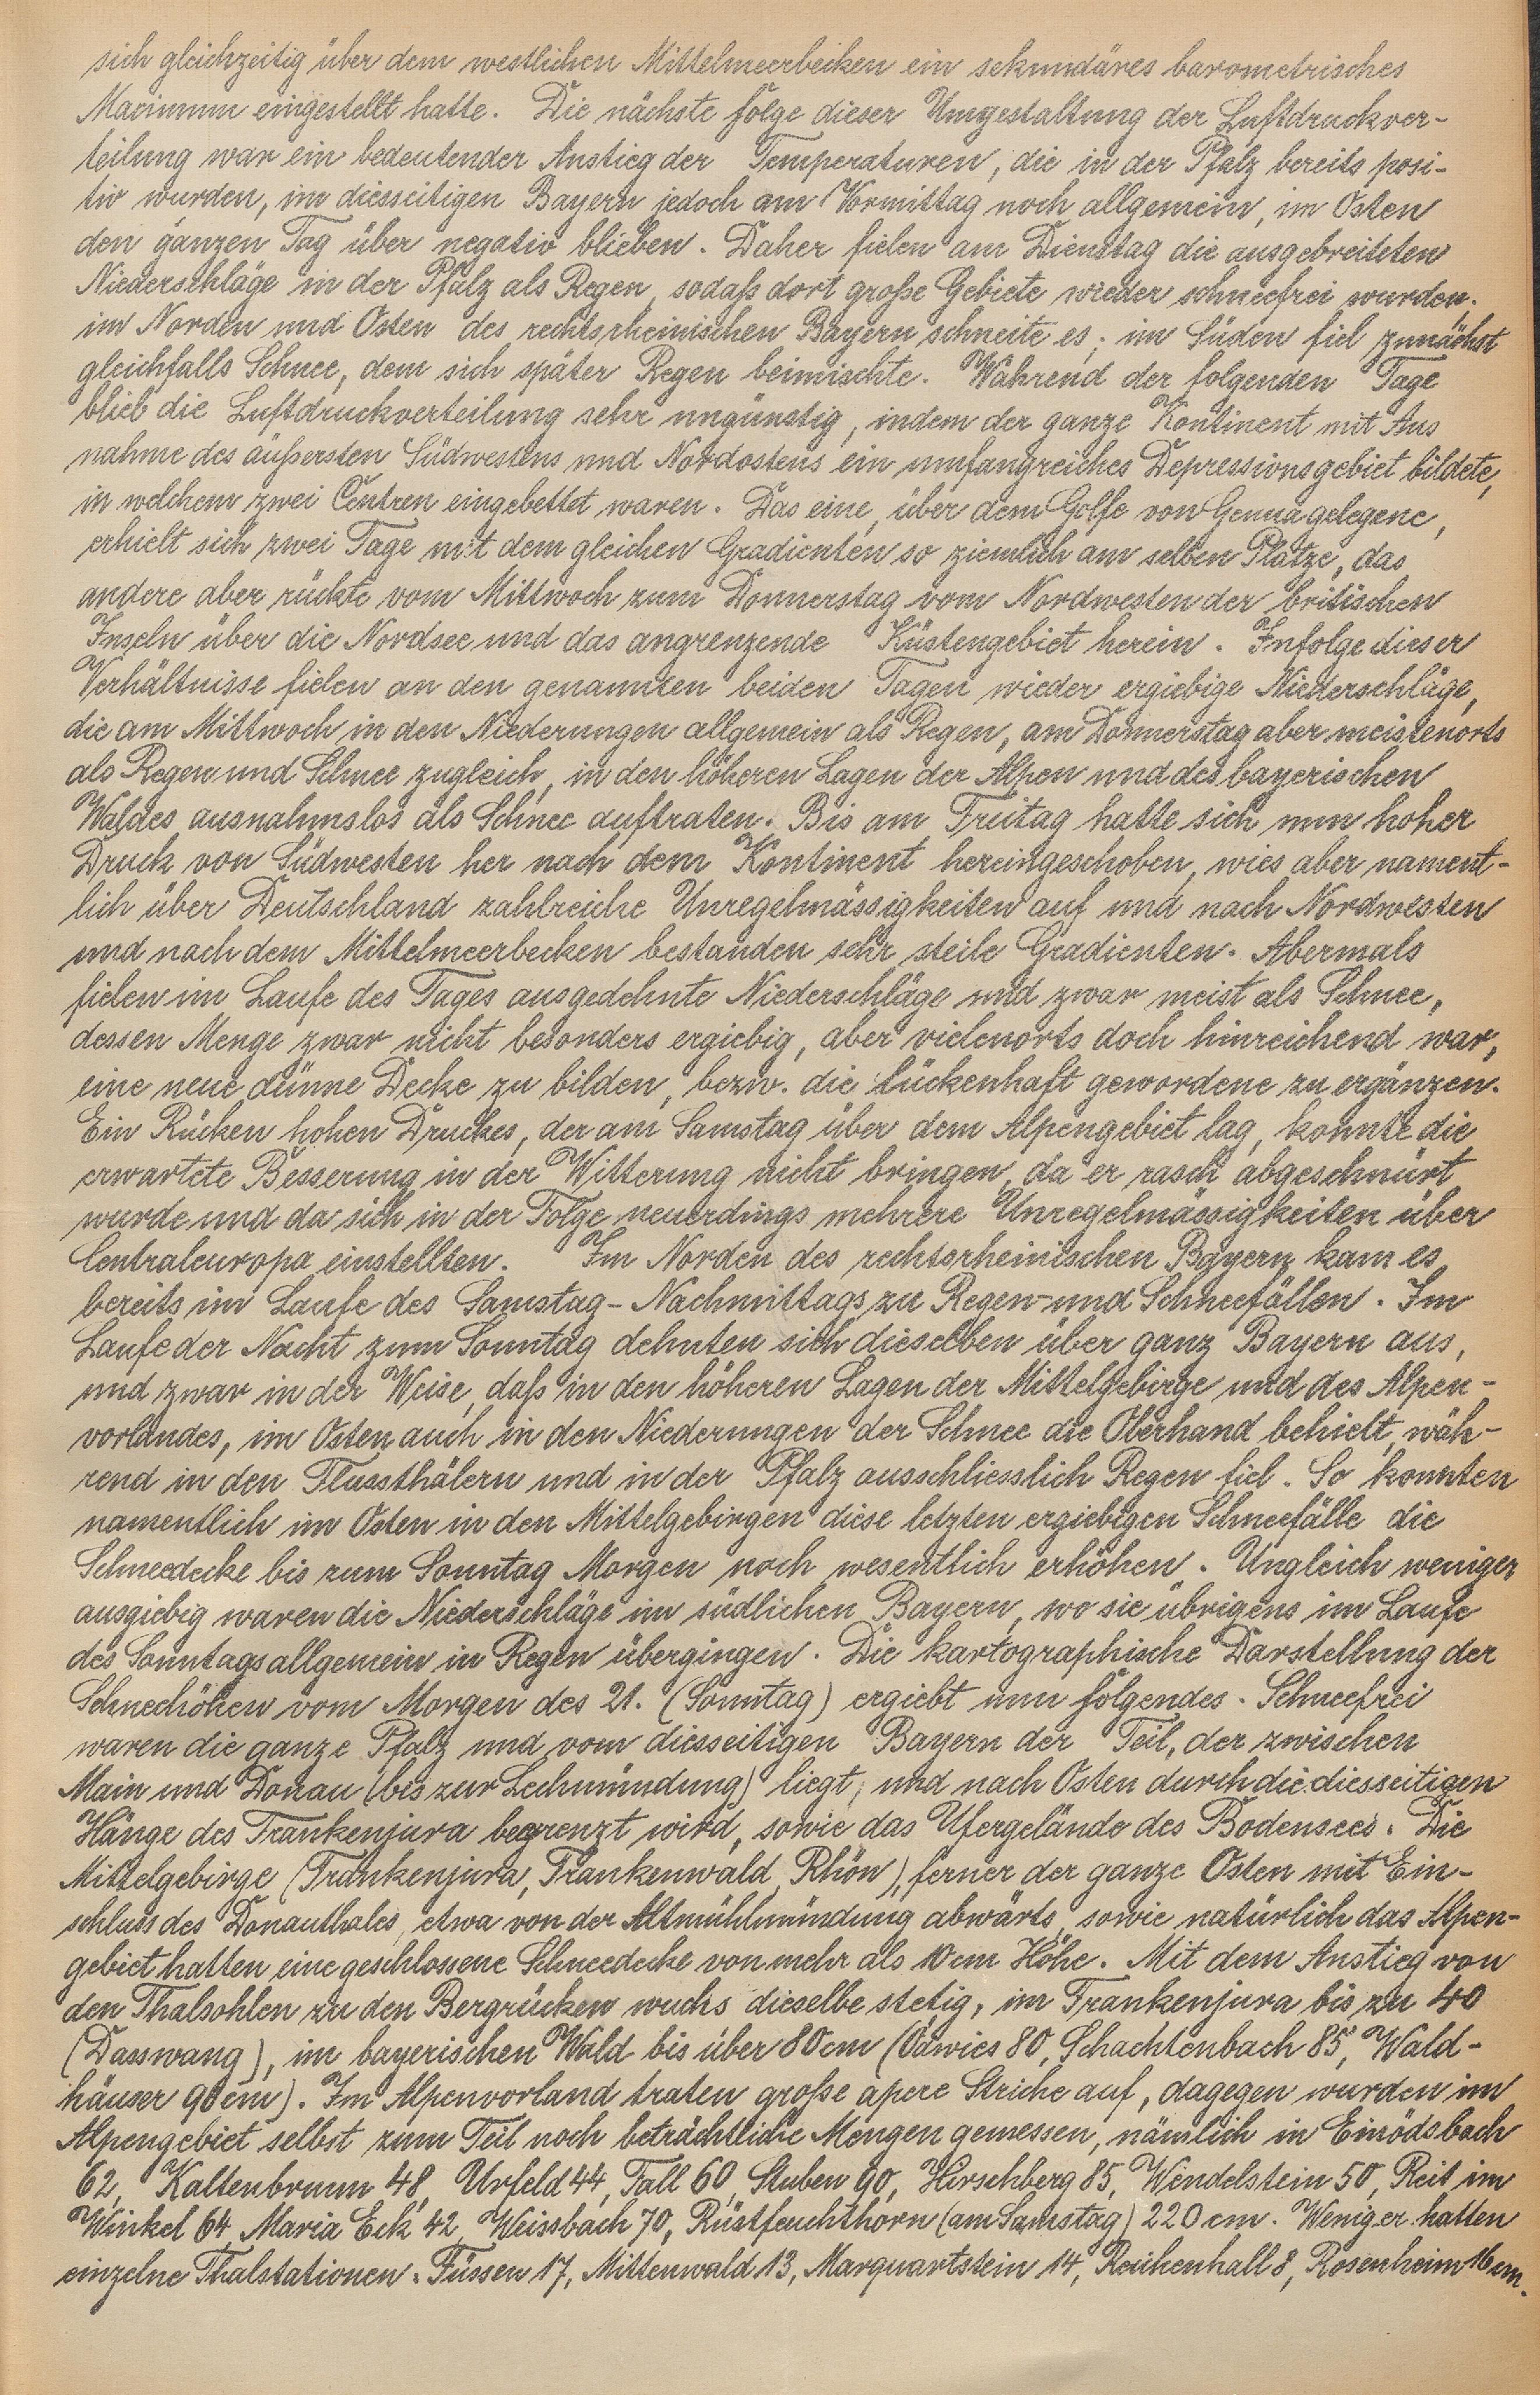 sich gleichzeitig über dem westlichen Mittelmeerbecken ein sekundäres barometrisches
Maximum eingestellt hatte. Die nächste Folge dieser Umgestaltung der Luftdruckver-
teilung war ein bedeutender Anstieg der Temperaturen, die in der Pfalz bereits posi-
tiv wurden, im diesseitigen Bayern jedoch am Vormittag noch allgemein, im Osten
den ganzen Tag über negativ blieben. Daher fielen am Dienstag die ausgebreiteten
Niederschläge in der Pfalz als Regen, sodaß dort große Gebiete wieder schneefrei wurden.
im Norden und Osten des rechtsrheinischen Bayern schneite es; im Süden fiel zunächst
gleichfalls Schnee, dem sich später Regen beimischte. Während der folgenden Tage
blieb die Luftdruckverteilung sehr ungünstig, indem der ganze Kontinent mit Aus
nahme des äußersten Südwestens und Nordostens ein umfangreiches Depressionsgebiet bildete,
in welchem zwei Centren eingebettet waren. Das eine, über dem Golfe von Genua gelegene,
erhielt sich zwei Tage mit dem gleichen Gradienten so ziemlich am selben Platze, das
andere aber rückte vom Mittwoch zum Donnerstag vom Nordwesten der britischen
Inseln über die Nordsee und das angrenzende Küstengebiet herein. Infolge dieser
Verhältnisse fielen an den genannten beiden Tagen wieder ergiebige Niederschläge,
die am Mittwoch in den Niederungen allgemein als Regen, am Donnerstag aber meistenorts
als Regen und Schnee zugleich, in den höheren Lagen der Alpen und des bayerischen
Waldes ausnahmslos als Schnee auftraten. Bis am Freitag hatte sich nun hoher
Druck von Südwesten her nach dem Kontinent hereingeschoben, wies aber nament-
lich über Deutschland zahlreiche Unregelmässigkeiten auf und nach Nordwesten
und nach dem Mittelmeerbecken bestanden sehr steile Gradienten. Abermals
fielen im Laufe des Tages ausgedehnte Niederschläge und zwar meist als Schnee,
dessen Menge zwar nicht besonders ergiebig, aber vielenorts doch hinreichend war,
eine neue dünne Decke zu bilden, bezw. die lückenhaft gewordene zu ergänzen.
Ein Rücken hohen Druckes, der am Samstag über dem Alpengebiet lag, konnte die
erwartete Besserung in der Witterung nicht bringen, da er rasch abgeschnürt
wurde und da sich in der Folge neuerdings mehrere Unregelmässigkeiten über
Centraleuropa einstellten. Im Norden des rechtsrheinischen Bayern kam es
bereits im Laufe des Samstag-Nachmittags zu Regen- und Schneefällen. Im
Laufe der Nacht zum Sonntag dehnten sich dieselben über ganz Bayern aus,
und zwar in der Weise, daß in den höheren Lagen der Mittelgebirge und des Alpen-
vorlandes, im Osten auch in den Niederungen der Schnee die Oberhand behielt, wäh-
rend in den Flussthälern und in der Pfalz ausschliesslich Regen fiel. So konnten
namentlich im Osten in den Mittelgebirgen diese letzten ergiebigen Schneefälle die
Schneedecke bis zum Sonntag Morgen noch wesentlich erhöhen. Ungleich weniger
ausgiebig waren die Niederschläge im südlichen Bayern, wo sie übrigens im Laufe
des Sonntags allgemein in Regen übergingen. Die kartographische Darstellung der
Schneehöhen vom Morgen des 21. (Sonntag) ergiebt nun folgendes. Schneefrei
waren die ganze Pfalz und vom diesseitigen Bayern der Teil, der zwischen
Main und Donau (bis zur Lechmündung) liegt, und nach Osten durch die diesseitigen
Hänge des Frankenjura begrenzt wird, sowie das Ufergelände des Bodensees. Die
Mittelgebirge (Frankenjura, Frankenwald, Rhön), ferner der ganze Osten mit Ein-
schluss des Donauthales, etwa von der Altmühlmündung abwärts, sowie natürlich das Alpen-
gebiet hatten eine geschlossene Schneedecke von mehr als 10 cm Höhe. Mit dem Anstieg von
den Thalsohlen zu den Bergrücken wuchs dieselbe stetig, im Frankenjura bis zu 40
(Dasswang), im bayerischen Wald bis über 80 cm (Ödwies 80, Schachtenbach 85, Wald-
häuser 90 cm). Im Alpenvorland traten große apere Striche auf, dagegen wurden im
Alpengebiet selbst zum Teil noch beträchtliche Mengen gemessen, nämlich in Einödsbach
62, Kaltenbrunn 48, Urfeld 44, Fall 60, Stuben 90, Hirschberg 85, Wendelstein 50, Reit im
Winkel 64, Maria Eck 42, Weissbach 70, Rüstfeuchthorn (am Samstag) 220 cm. Weniger hatten
einzelne Thalstationen. Füssen 17, Mittenwald 13, Marquartstein 14, Reichenhall 8, Rosenheim 16 cm.